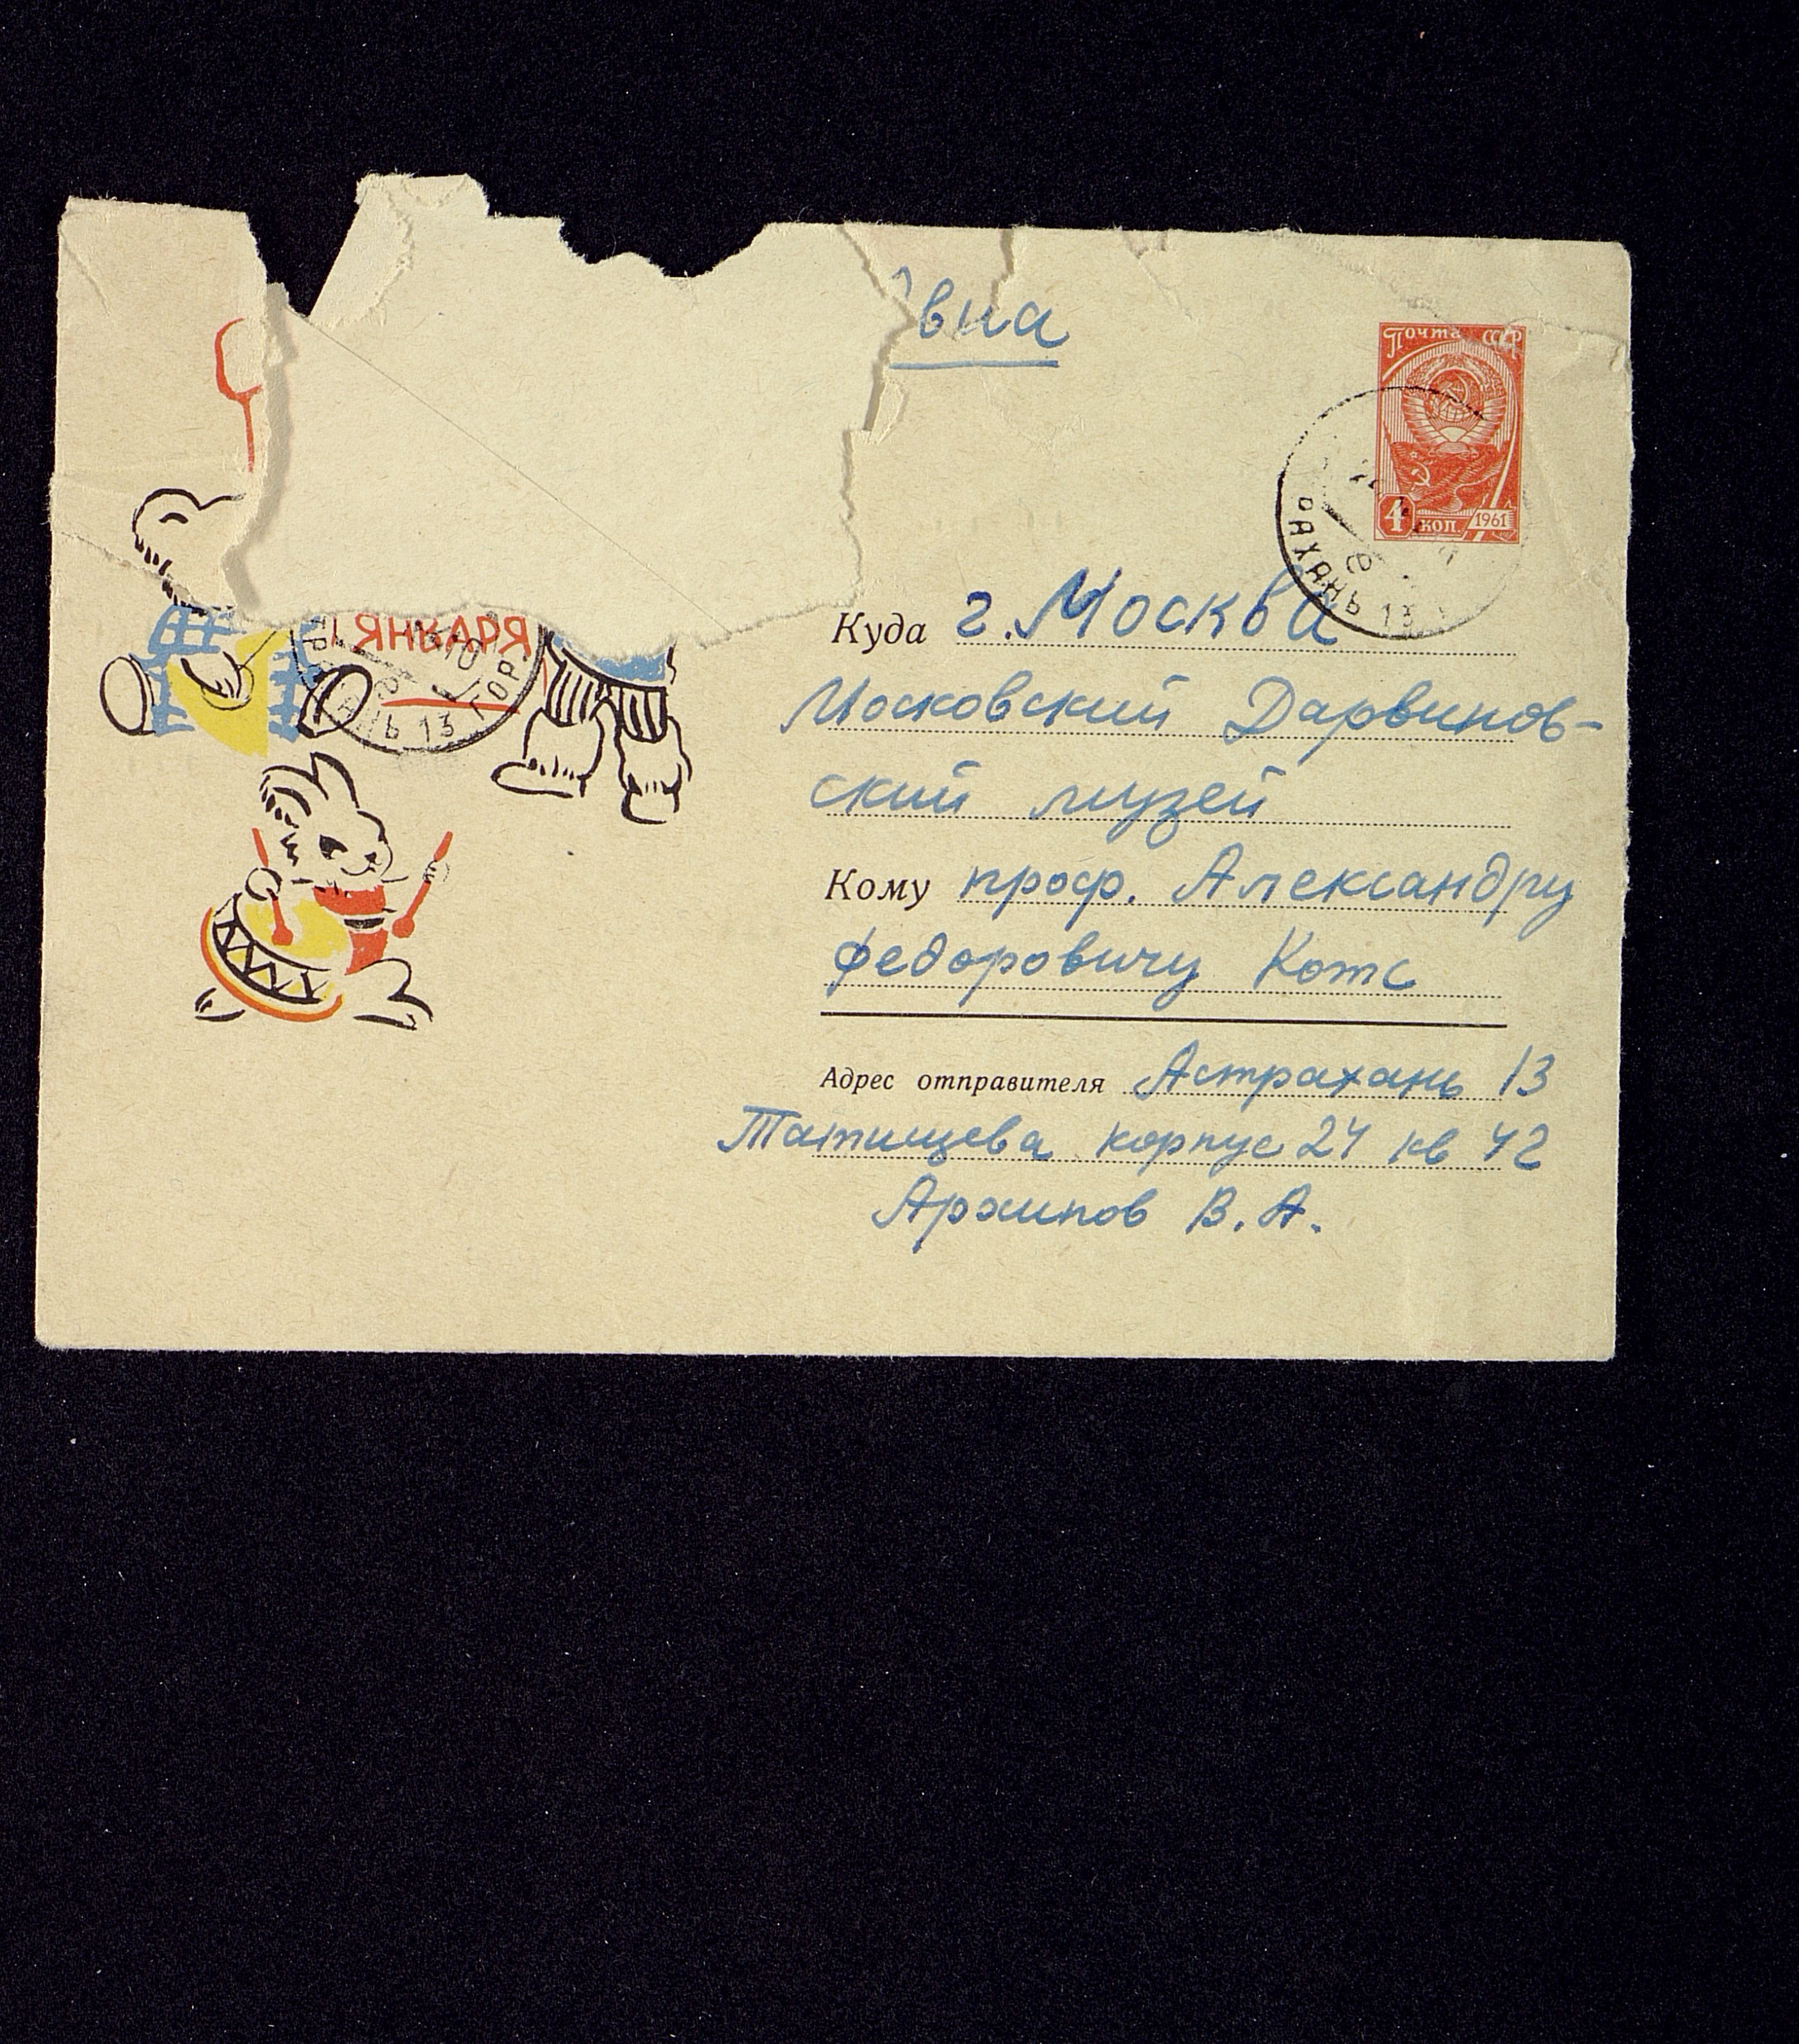 вна
Почта СССР
4 коп. 1961
РАХАНЬ 13
1 ЯНВАРЯ
АНЬ 13 ГОР.
Куда г. Москва
Московский Дарвинов-
ский музей
Кому проф. Александру
Федоровичу Котс
Адрес отправителя Астрахань 13
Татищева корпус 24 кв 42
Архипов В. А.